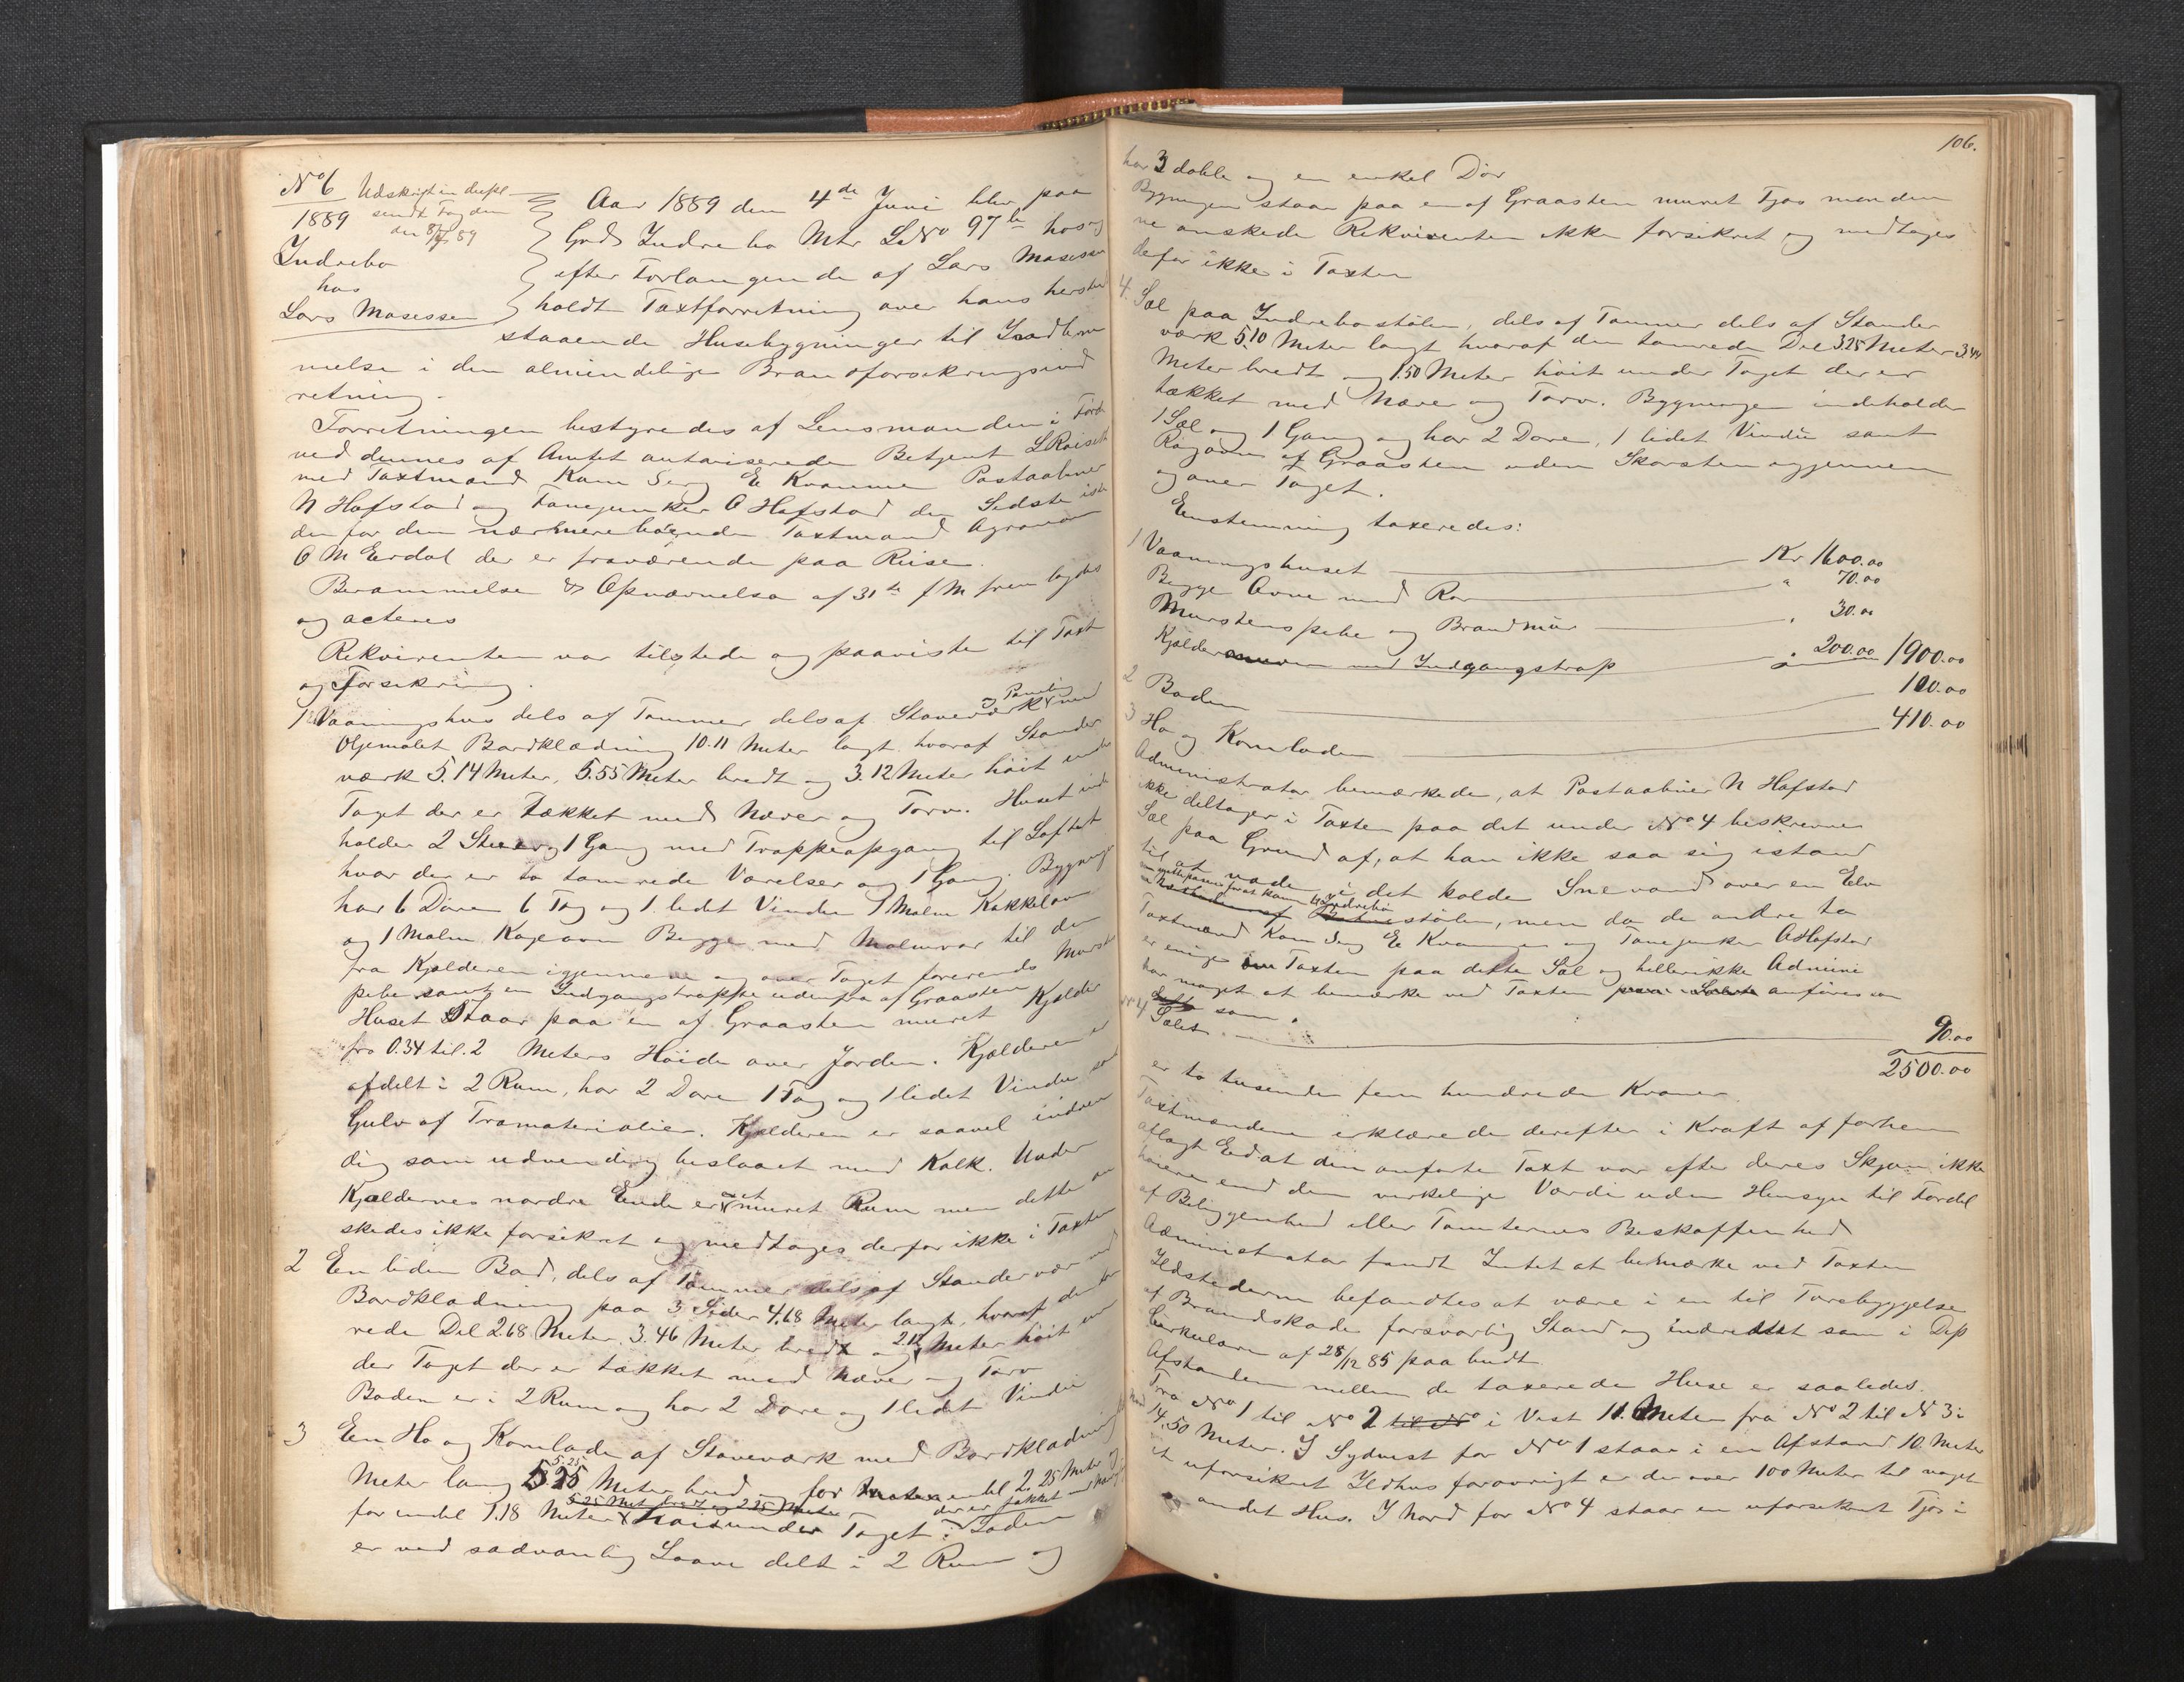 No 6 Udskrift in dupl
1889 sendt Fogden
den 8/7 89
Indrebø
hos
Lars Mosessen
Aar 1889 den 4de Juni blev paa
Grd Indrebø Mtr LNo 97 hos og
efter Forlangende af Lars Mosessen
holdt Taxtforretning over hans herstæd
staaende Husebygninger til Indlem
melse i den almindelige Brandforsikringsind
retning.
Forretningen bestyredes af Lensmanden i Førde
ved dennes af Amtet autoriserede Betjent
med Taxtmænd Kom Serg E Kvamme Postaabner
N Hafstad og Fanejunker O Hafstad den Sidste iste
den for den nærmere boende Taxtmand Agronom
O M Eerdal der er fraværende paa Reise.
Berammelse & Opnævnelse af 31te f M fremlagdes
og acteres
Rekvirenten var tilstede og paaviste til Taxt
og Forsikring.
1 Vaaningshus dels af Tømmer dels af Staveværk og Paneling med
Oljemalet Bordklædning 10.11 Meter langt hvoraf Stander
værk 5.14 Meter, 5.55 Meter bredt og 3.12 Meter høit under
Taget der er tækket med Næver og Torv. Huset inde
holder 2 Stuer og 1 Gang med Trappeopgang til Loftet
hvor der er to tømrede Værelser og 1 Gang. Bygningen
har 6 Døre 6 Fag og 1 lidet Vindu 1 Malm Kakkelovn
og 1 Malm Kogeovn Begge med Malmrør til den
fra Kjælderen igjennem og over Taget førerende Murstens
pibe samt en Indgangstrappe udenfra af Graasten
Huset Staar paa en af Graasten muret Kjælder
fra 0.34 til 2 Meters Høide over Jorden. Kjælderen er
afdelt i 2 Rum, har 2 Døre 1 Fag og 1 lidet Vindu samt
Gulv af Træmaterialier. Kjælderen er saavel indven
dig som udvendig beslaaet med Kalk. Under
Kjælderens nordre Ende er et muret Rum men dette øn
skedes ikke forsikret og medtages derfor ikke i Taxten
2 En liden Bod, dels af Tømmer dels af Standerværk med
Bordklædning paa 3 Sider 4.68 Meter langt, hvoraf den tøm
rede Del 2.68 Meter, 3.46 Meter bredt og 2.12 Meter høit un
der Taget der er tækket med Næver og Torv
Boden er i 2 Rum og har 2 Døre og 1 lidet Vindu
3 En Hø og Kornlade af Staveværk med Bordklædning
Meter lang 5.25 Meter bred og for endel 2.25 Meter og
for endel 1.18 Meter høit under Taget der er tækket med Laden
er ved sædvanlig Laave delt i 2 Rum og
106.
har 3 doble og en enkel Dør
Bygningen staar paa en af Graasten muret Fjøs men den
ne ønskede Rekvirenten ikke forsikret og medtages
defor ikke i Taxten
4. Sæl paa Indrebøstølen, dels af Tømmer dels af Stander
værk 5.10 Meter langt hvoraf den tømrede Del 3.25 Meter 3.44
Meter bredt og 1.50 Meter høit under Taget der er
tækket med Næver og Torv. Bygningen indeholder
1 Sæl og 1 Gang og har 2 Døre, 1 lidet Vindu samt
Røgovn af Graasten uden Skorsten igjennem
og over Taget.
Eenstemmig taxeredes:
1 Vaaningshuset Kr 1600.00
Begge Ovne med Rør " 70.00
Murstenspibe og Brandmur " 30.00
Kjælder med Indgangstrap " 200.00 1900.00
2 Boden 100.00
3 Hø og Kornladen 410.00
Administrator bemærkede, at Postaabner N Hafstad
ikke deltager i Taxten paa det under No 4 beskrevne
Sæl paa Grund af, at han ikke saa sig istand
til at vade i det kolde Snevand over en Elv
Indrebøstølen, men da de andre to
Taxtmænd Kom Serg E Kvamme og Fanejunker O Hafstad
er enige om Taxten paa dette Sæl og heller ikke Admini
har noget at bemærke ved Taxten anføres som
som.
No 4 Sælet 90.00
2500.00
er to tusende fem hundrede Kroner.
Taxtmændene erklærede derefter i Kraft af forhen
aflagt Eed at den anførte Taxt var efter deres Skjøn ikke
høiere end den verkelige Værdi uden Hensyn til Fordel
af Beliggenhed eller Tomternes Beskaffenhed
Administrator fandt Intet at bemærke ved Taxten
Ildstederne befandtes at være i en til Forebyggelse
af Brandskade forsvarlig Stand og indrettet som i Dep
Cirkulære af 28/12 85 paabudt.
Afstanden mellem de taxerede Huse er saaledes:
Fra No 1 til No 2 til No i Vest 11.6 Meter fra No 2 til N 3 i
Nord 14.50 Meter. I Sydvest for No 1 staar i en Afstand 10 Meter
et uforsikret Ildhus forøvrigt er der over 100 Meter til noget
andet Hus. I Nord for No 4 staar en uforsikret Fjøs i